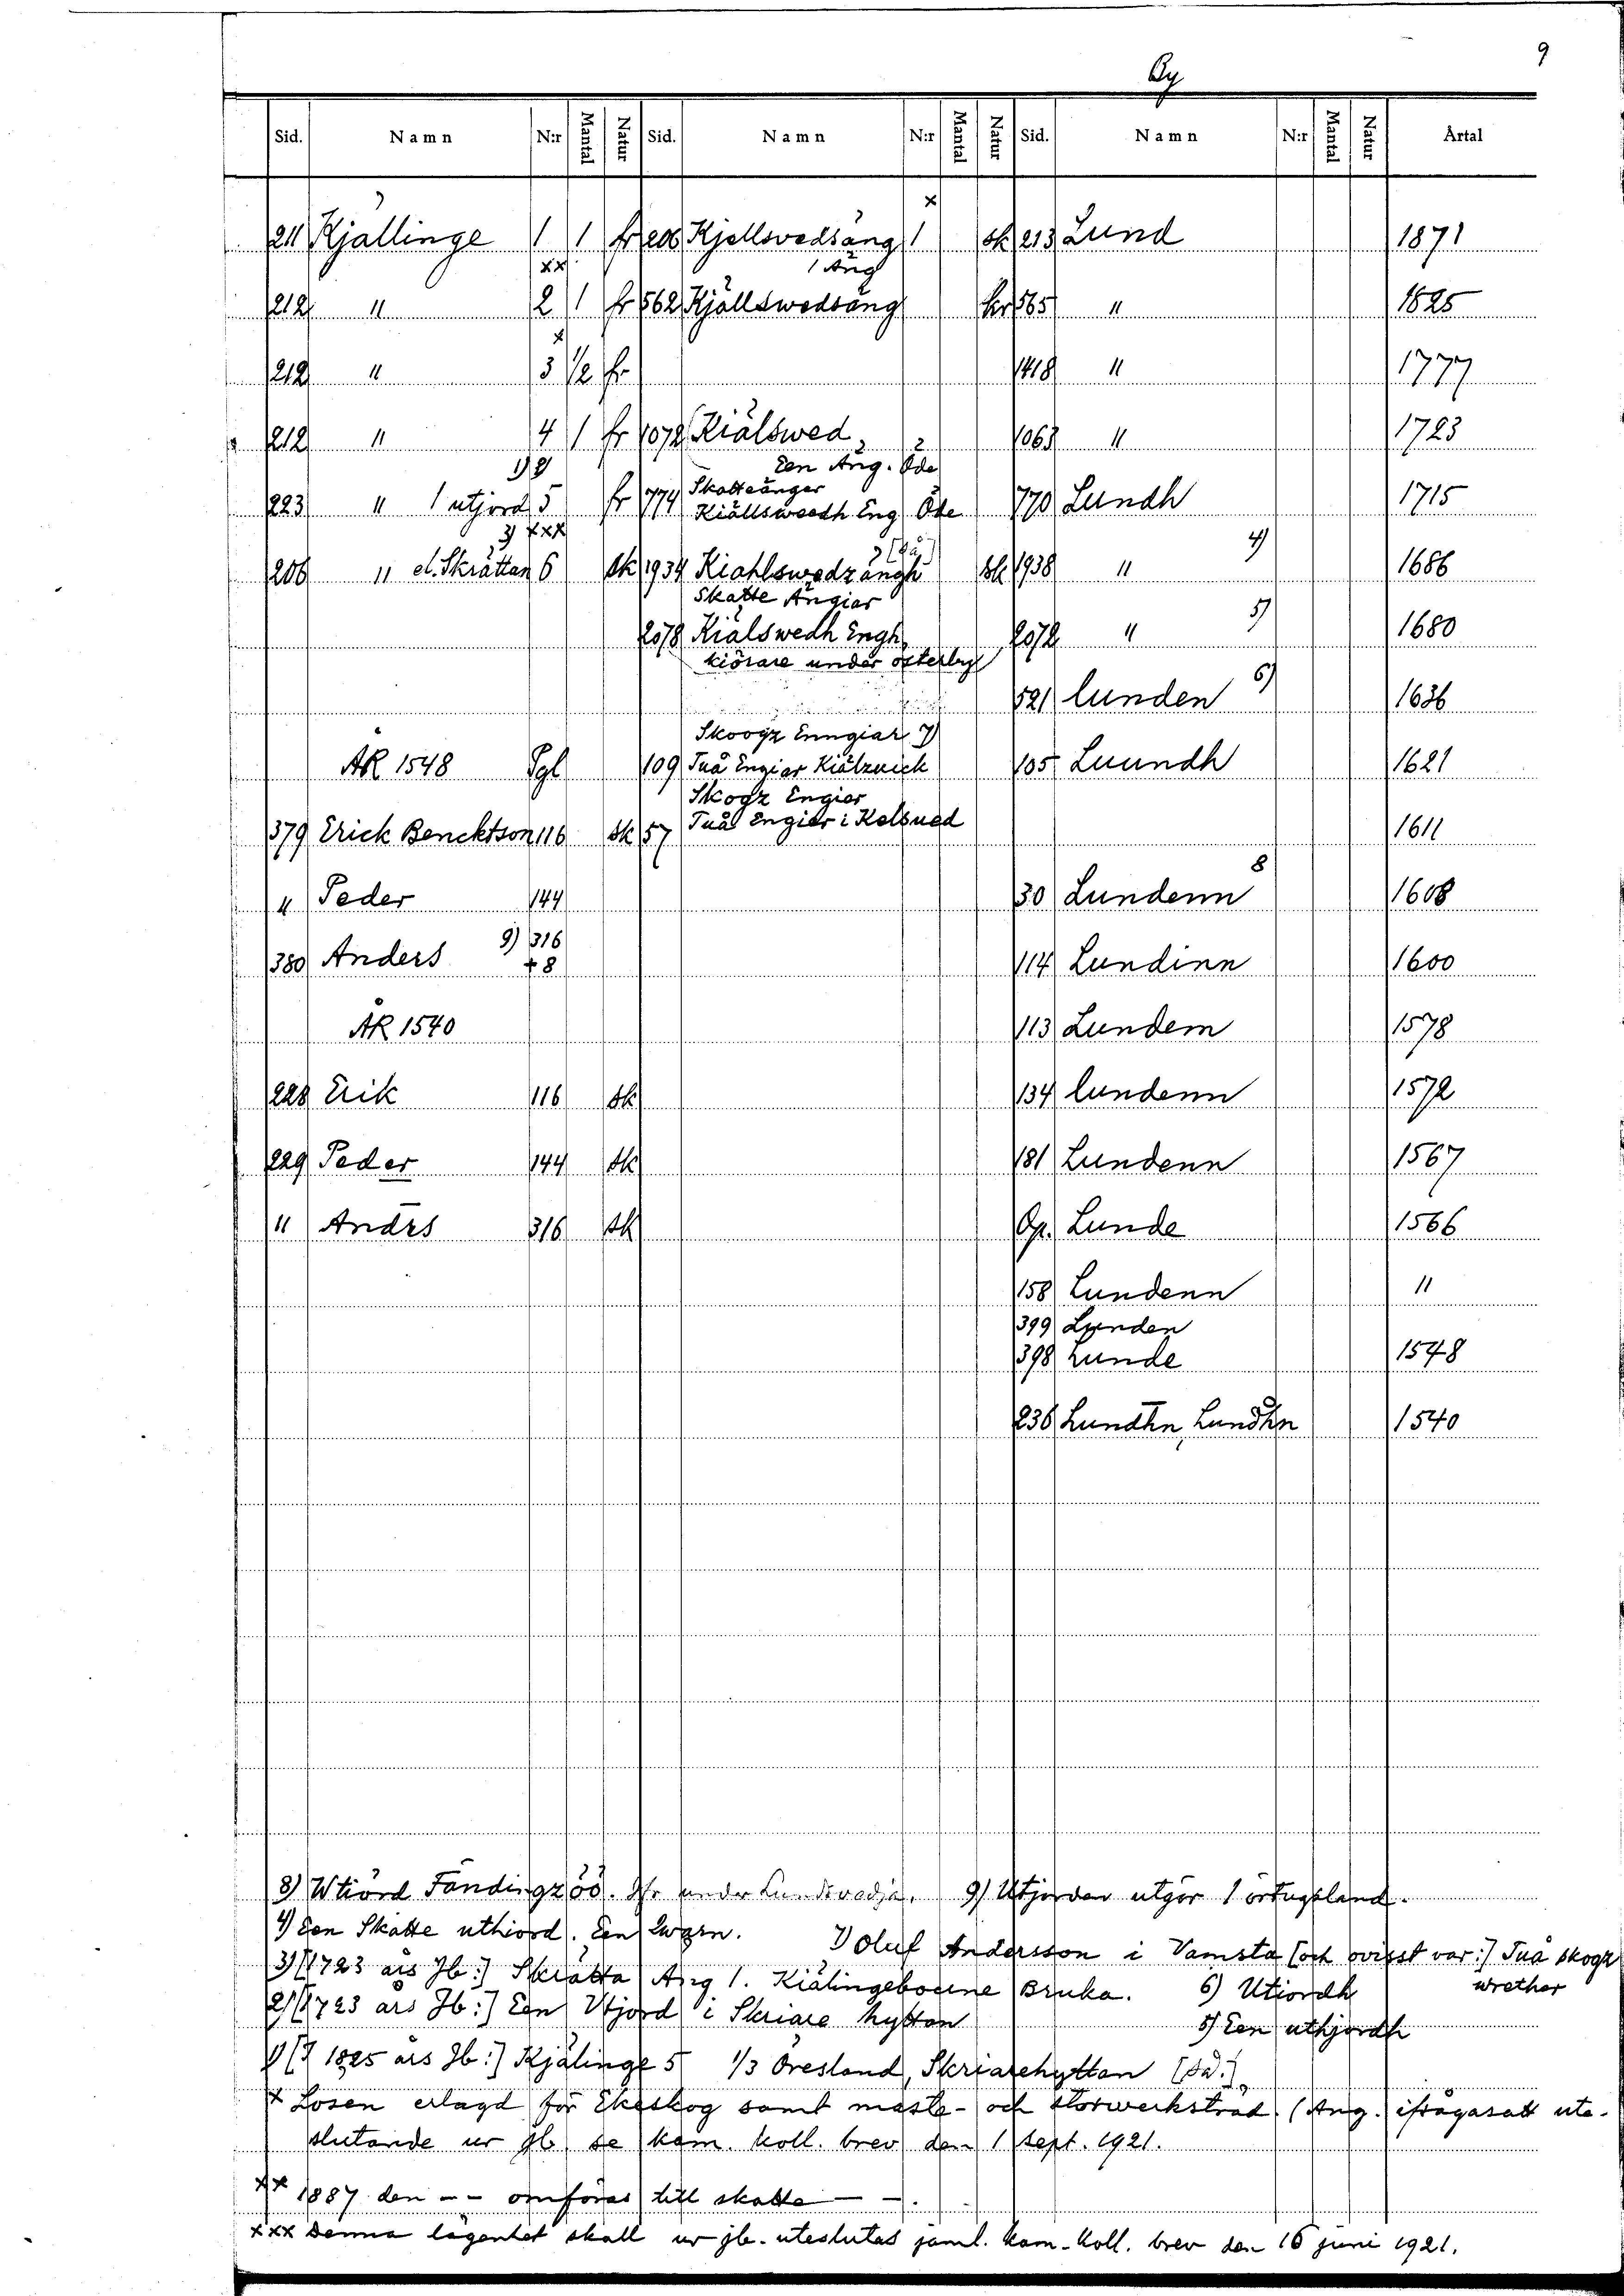 9
By
Sid. Namn N:r Mantal Natur Sid. Namn N:r Mantal Natur Sid. Namn N:r Mantal Natur Årtal
x
211 Kjällinge 1 1 fr 208 Kjellsvedsäng 1 sk 213 Lund 1871
xx 1 Äng
212 " 2 1 fr 562 Kjällswedsäng kr 565 " 1825
x
212 " 3 1/2 fr 1418 " 1777
212 " 4 1 fr 1072 Kiälswed 1063 " 1723
1) 2) Een Äng. Öde 2
Skatteänger
223 " 1 utjord 5 fr 774 Kiällsweedh Eng Öde 770 Lundh 1715
3) xxx
206 " el. Skråttan 6 sk 1934 Kiahlswedzängh sk 1938 " 4) 1686
Skatte Ängiar
2078 Kiälswedh Engh 2072 " 5) 1680
kiörare under österby
521 lunden 6) 1636
Skoogz Enngiar 7)
ÅR 1548 Pgl 109 Tuå Engiar Kiälzuich 105 Luundh 1621
Skogz Engier
379 Erick Bencktson 116 sk 57 Tuå Engier i Kelsued 1611
" Peder 144 30 Lundenn 8 1608
9) 316
380 Anders + 8 114 Lundinn 1600
ÅR 1540 113 Lundem 1578
228 Erik 116 sk 134 lundenn 1572
229 Peder 144 sk 181 Lundenn 1567
" Andrs 316 sk Gp. Lunde 1566
158 Lundenn "
399 Lunden
398 Lunde 1548
236 Lundhn, Lundhn 1540
8) Wtiörd Fändingzöö. 9) Utjorden utgör 1 örtugsland.
4) Een Skatte uthiord. Een Qwarn. 7) Oluf Andersson i Vamsta [och ovisst var:] Tuå skogz
wrether
3) [1723 års Jb:] Skråtta Äng 1. Kiälingeboerne Bruka. 6) Utiordh
2) [1723 års Jb:] Een Utjord i Skriare hyttan 5) Een uthjordh
1) [I 1825 års Jb:] Kjälinge 5 1/3 Öresland, Skriarehyttan [Sd.]
x Lösen erlagd för Ekeskog samt maste- och storwerksträd. (Ang. ifrågasatt ute-
slutande ur jb. se kam. koll. brev den 1 sept. 1921.
xx 1887 den -- omföras till skatte - -.
xxx Denna lägenhet skall ur jb. uteslutas jäml. kam.-koll. brev den 16 juni 1921.